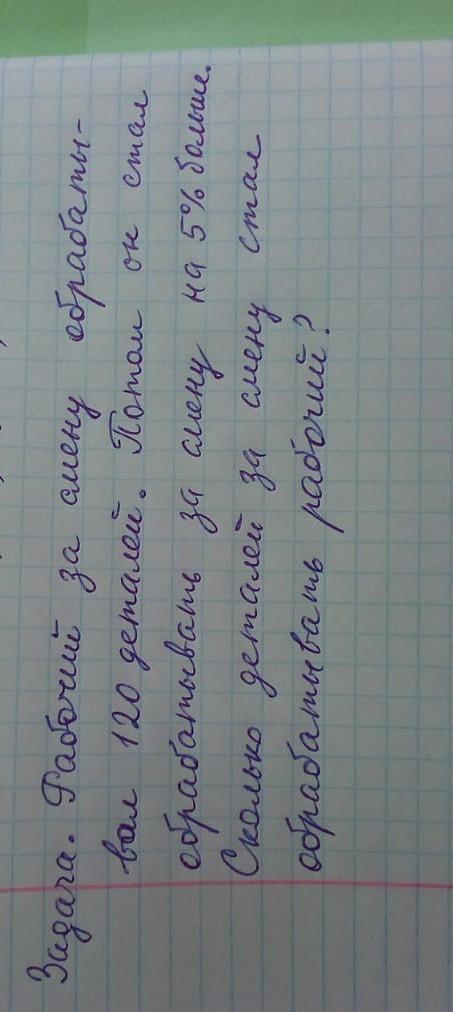 Задача. Рабочий за смену обрабаты-
вал 120 деталей. Потом он стал
обрабатывать за смену на 5% больше.
Сколько деталей за смену стал
обрабатывать рабочий?